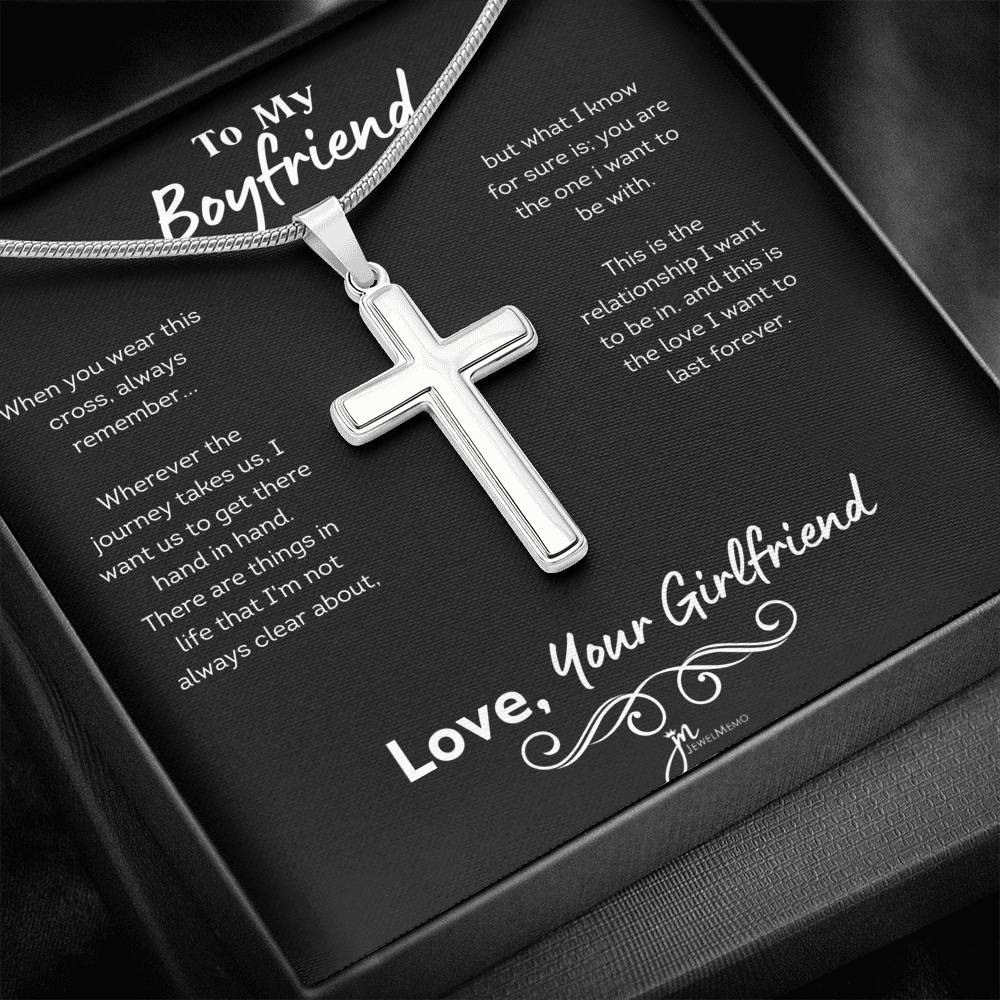 To My
Boyfriend
When you wear this
cross, always
remember...
Wherever the
journey takes us, I
want us to get there
hand in hand.
There are things in
life that I'm not
always clear about,
but what I know
for sure is; you are
the one i want to
be with.
This is the
relationship I want
to be in, and this is
the love I want to
last forever.
Love, Your Girlfriend
JM
JEWELMEMO